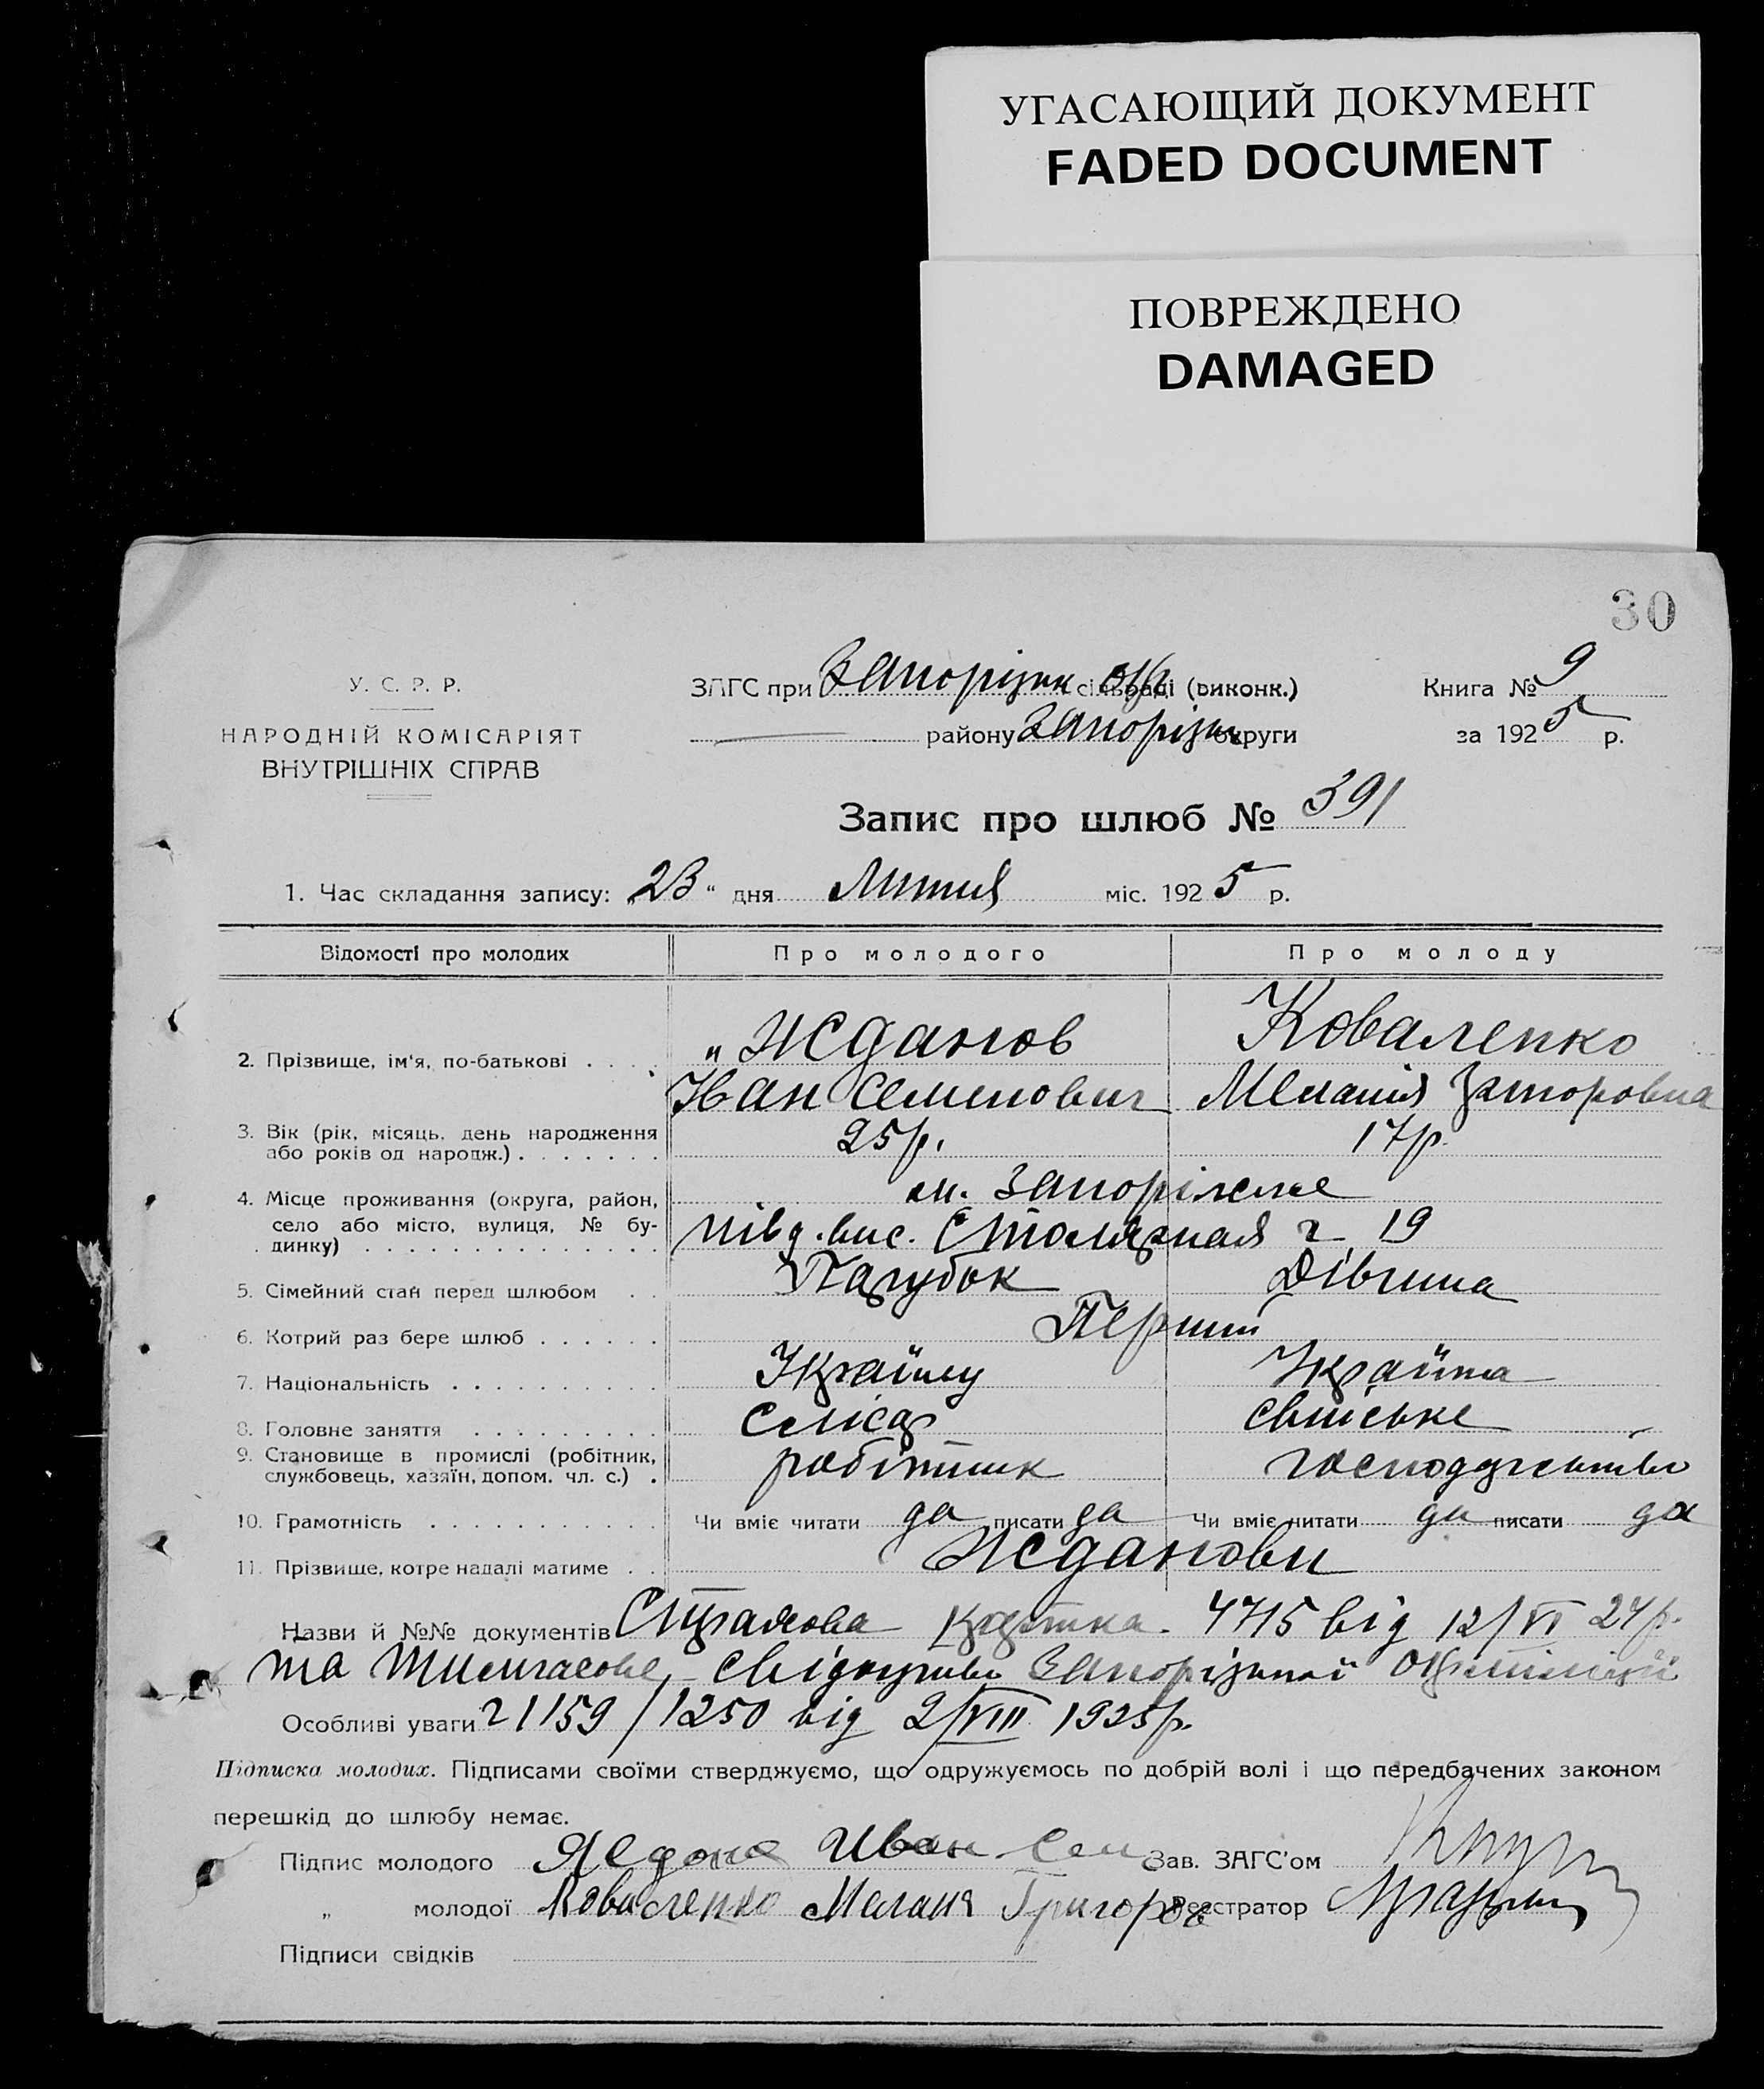 УГАСАЮЩИЙ ДОКУМЕНТ
FADED DOCUMENT
ПОВРЕЖДЕНО
DAMAGED
30
У. С. Р. Р.
НАРОДНІЙ КОМІСАРІЯТ
ВНУТРІШНІХ СПРАВ
ЗАГС при Запорізьк сільраді (виконк.)
району Запорізьк округи
Книга № 9
за 1925 р.
Запис про шлюб № 391
1. Час складання запису: „23“ дня міс. 1925 р.
Відомості про молодих Про молодого Про молоду
2. Прізвище, ім'я, по-батькові . . . . Жданов Коваленко
Иван Семенович Меланія
3. Вік (рік, місяць, день народження
або років од народж.) . . . . . . . 25 р. 17 р.
4. Місце проживання (округа, район,
село або місто, вулиця, № бу-
динку) . . . . . . . . . . . . . . м. Запоріжже
півд. вис. Столярная ч 19
5. Сімейний стан перед шлюбом . . Парубок Дівчина
6. Котрий раз бере шлюб . . . . . . Перший
7. Національність . . . . . . . . . .
8. Головне заняття . . . . . . . . . . слюсар сільське
9. Становище в промислі (робітник,
службовець, хазяїн, допом. чл. с.) . робітник господарство
10. Грамотність . . . . . . . . . . . Чи вміє читати да писати да Чи вміє читати да писати да
11. Прізвище, котре надалі матиме . . Жданови
Назви й №№ документів Страхова картка 4715 від 12/VI 24 р.
та тимчасове свідоцтво Запорізької
Особливі уваги ч 1159/1250 від 2/VIII 1925 р.
Підписка молодих. Підписами своїми стверджуємо, що одружуємось по добрій волі і що передбачених законом
перешкід до шлюбу немає.
Підпис молодого Иван Сем Зав. ЗАГС'ом
„ молодої Коваленко Меланя Григоров Реєстратор
Підписи свідків